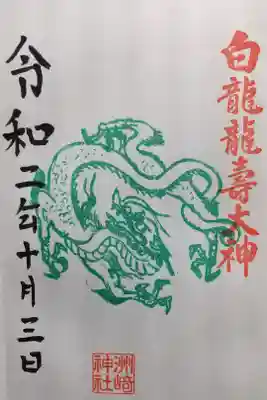 白龍龍壽大神
令和二年十月三日
洲﨑神社